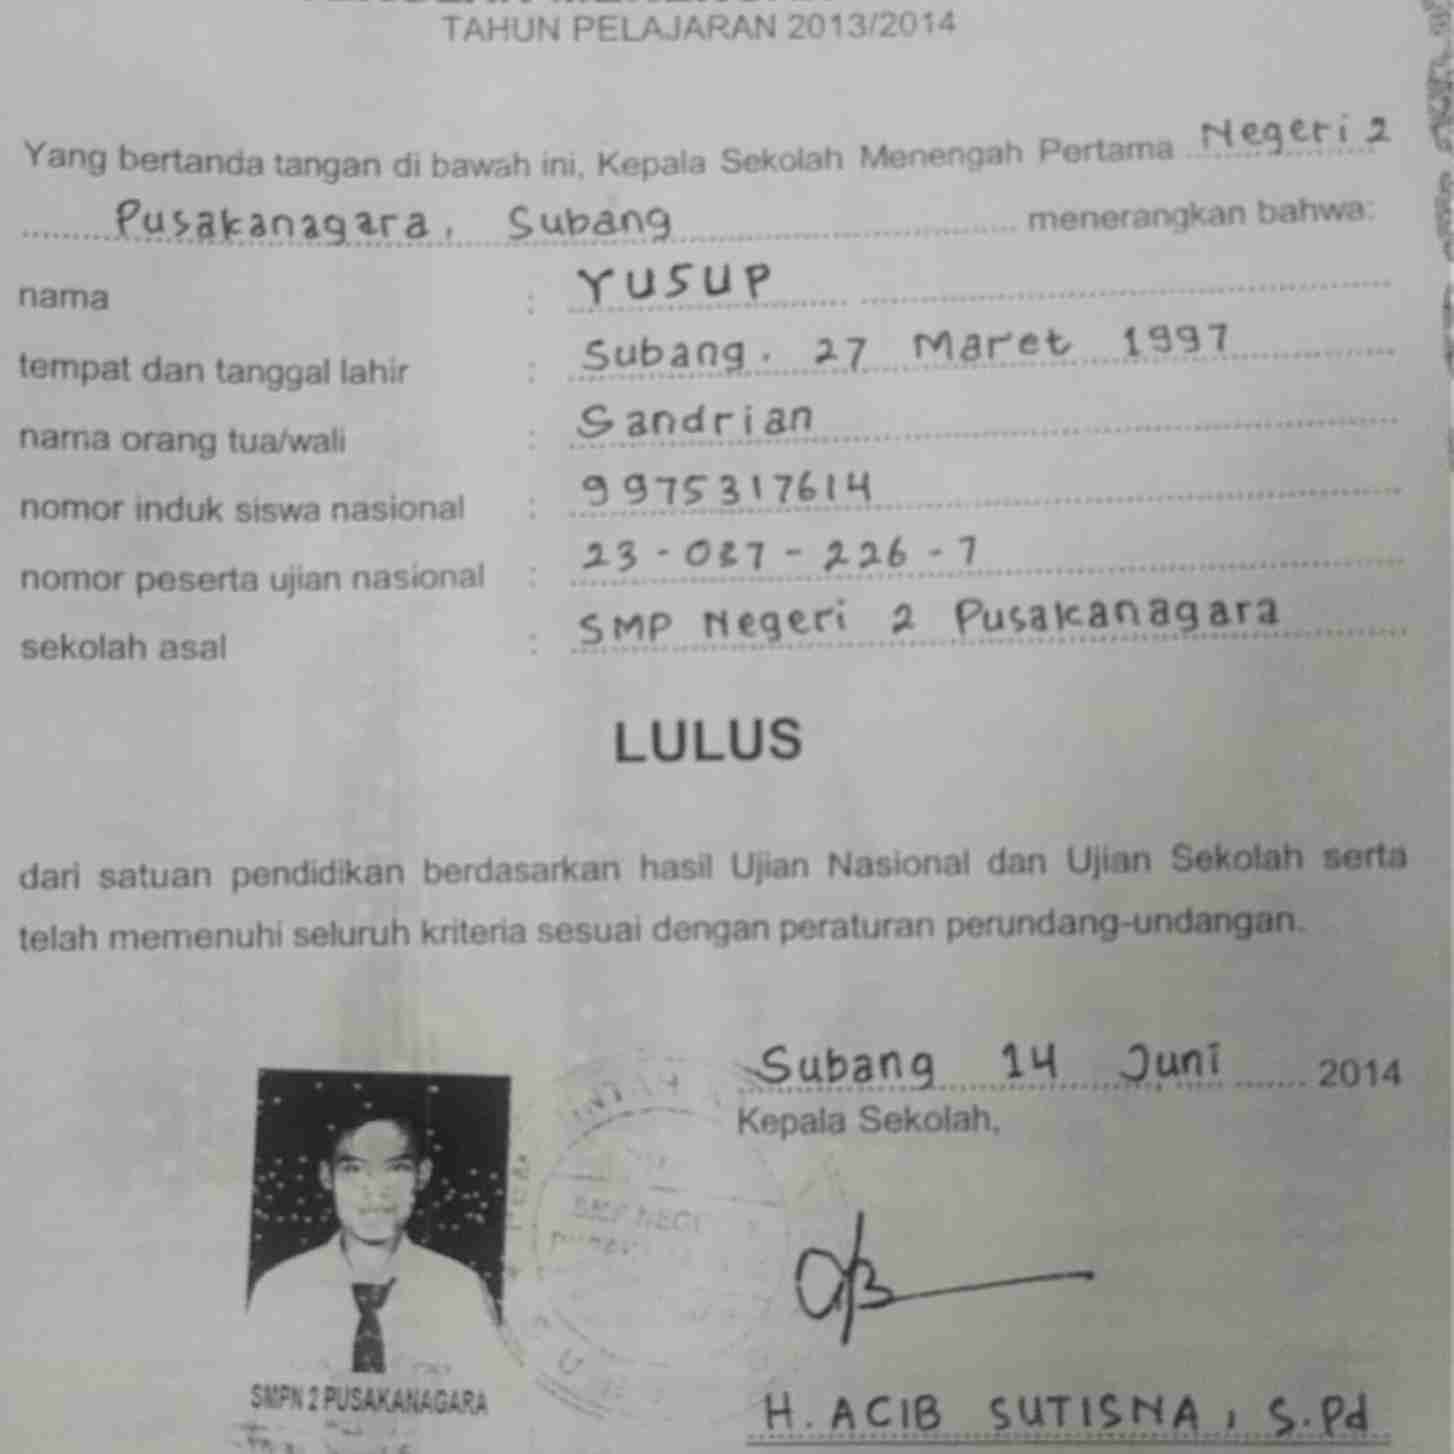 TAHUN PELAJARAN 2013/2014
Yang bertanda tangan di bawah ini, Kepala Sekolah Menengah Pertama Negeri 2
Pusakanagara, Subang menerangkan bahwa:
nama : YUSUP
tempat dan tanggal lahir : Subang. 27 Maret 1997
nama orang tua/wali : Sandrian
nomor induk siswa nasional : 9975317614
nomor peserta ujian nasional : 23-087-226-7
sekolah asal : SMP Negeri 2 Pusakanagara
LULUS
dari satuan pendidikan berdasarkan hasil Ujian Nasional dan Ujian Sekolah serta
telah memenuhi seluruh kriteria sesuai dengan peraturan perundang-undangan.
Subang 14 Juni 2014
Kepala Sekolah,
SMPN 2 PUSAKANAGARA
H. ACIB SUTISNA, S.Pd